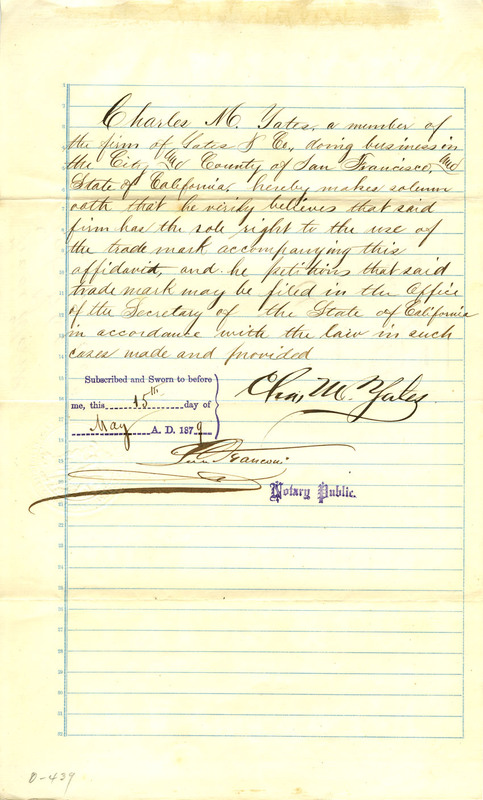 Charles M. Yates, a member of
the firm of Yates & Co., doing business in
the City and County of San Francisco, and
State of California, hereby makes solemn
oath that he verily believes that said
firm has the sole right to the use of
the trade mark accompanying this
affidavit, and he petitions that said
trade mark may be filed in the Office
of the Secretary of the State of California
in accordance with the law in such
cases made and provided
Subscribed and Sworn to before
me, this 15th day of
May A. D. 1879
Chas, M. Yates
Notary Public.
0-439